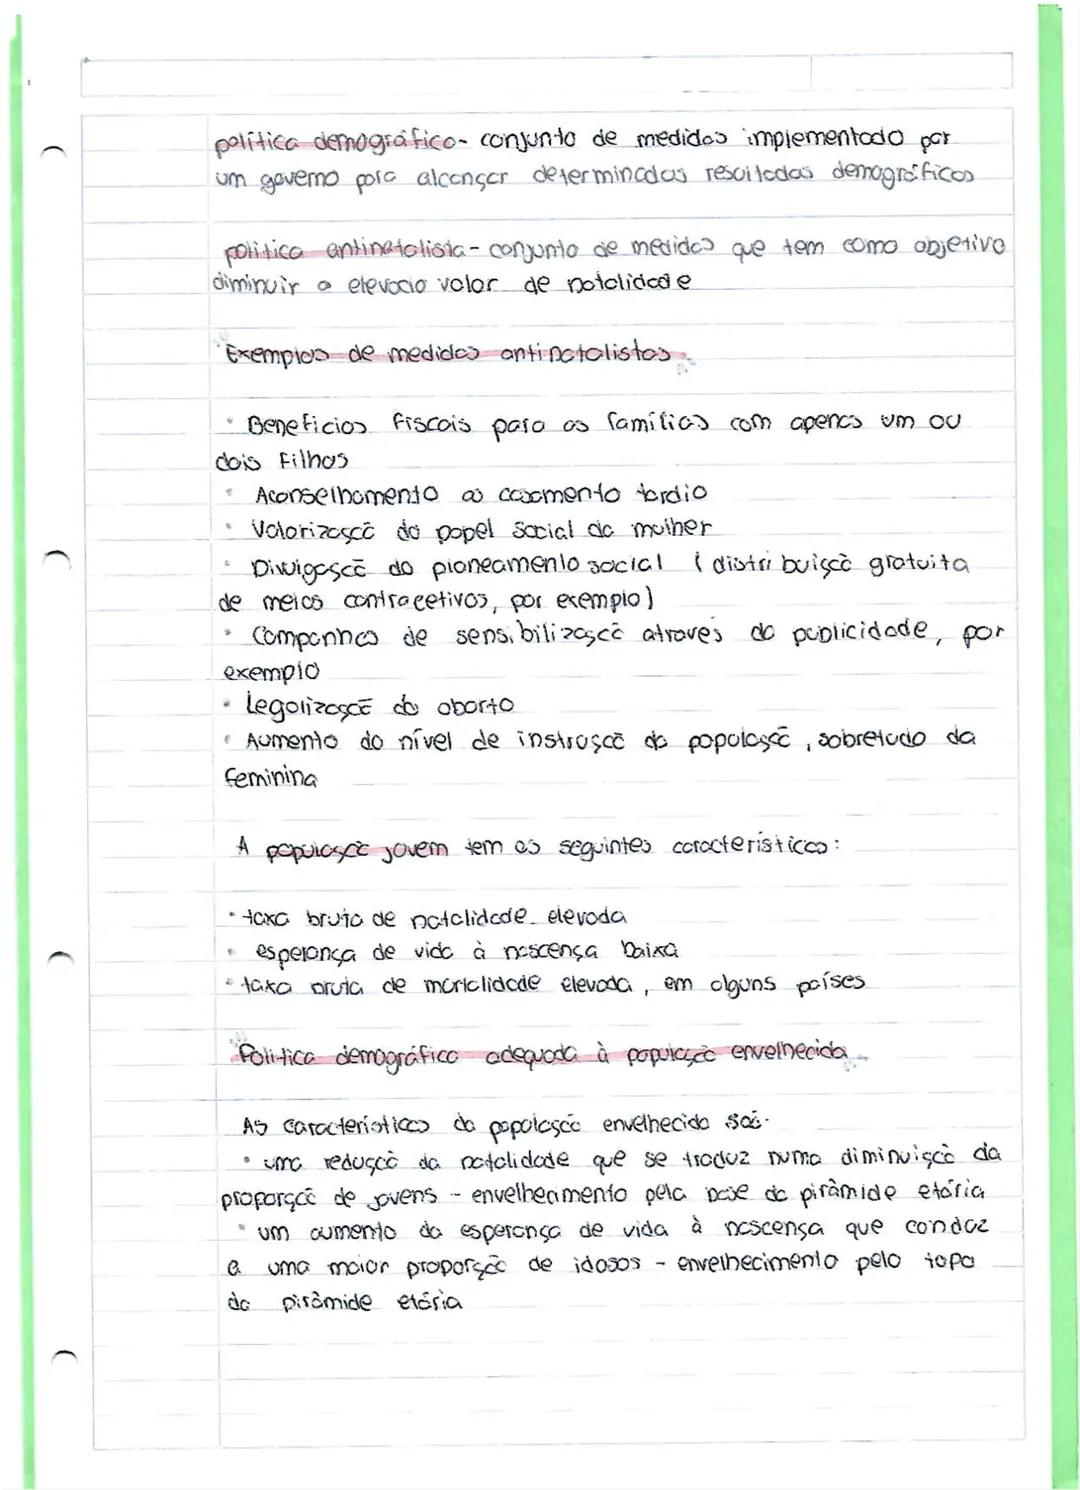 política demográfica- conjunto de medidas implementado por
um governo para alcançar determinadas resultados demográficos
política antinatalista- conjunto de medidas que tem como objetivo
diminuir o elevado valor de natalidade
Exemplos de medidas antinatalistas
• Beneficios fiscais para as famílias com apenas um ou
dois filhos
• Aconselhamento ao casamento tardio
• Valorização do papel social da mulher
• Divulgação do planeamento social (distribuição gratuita
de meios contracetivos, por exemplo)
• Campanhas de sensibilização através da publicidade, por
exemplo
• Legalização do aborto
• Aumento do nível de instrução da população, sobretudo da
feminina
A população jovem tem as seguintes caracteristicas:
• taxa bruta de natalidade elevada
• esperança de vida à nascença baixa
• taxa bruta de mortalidade elevada, em alguns países
Politica demográfica adequada à população envelhecida
As caracteristicas da população envelhecida são:
• uma redução da natalidade que se traduz numa diminuição da
proporção de jovens - envelhecimento pela base da pirâmide etária
• um aumento da esperança de vida à nascença que conduz
a uma maior proporção de idosos - envelhecimento pelo topo
da pirâmide etária